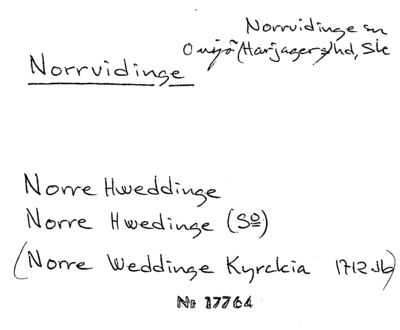 Norrvidinge sn
Onsjö (Harjagers) hd, Sk
Norrvidinge
Norre Hweddinge
Norre Hwedinge (So)
(Norre Weddinge Kyrckia 1712 Jb)
No 17764